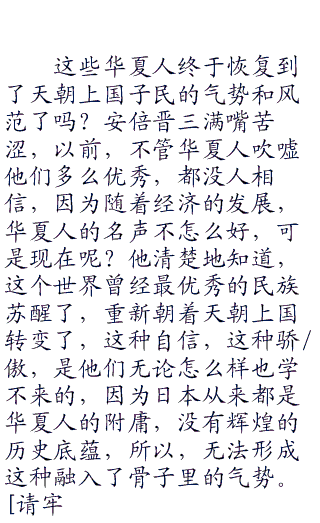 这些华夏人终于恢复到
了天朝上国子民的气势和风
范了吗？安倍晋三满嘴苦
涩，以前，不管华夏人吹嘘
他们多么优秀，都没人相
信，因为随着经济的发展，
华夏人的名声不怎么好，可
是现在呢？他清楚地知道，
这个世界曾经最优秀的民族
苏醒了，重新朝着天朝上国
转变了，这种自信，这种骄/
傲，是他们无论怎么样也学
不来的，因为日本从来都是
华夏人的附庸，没有辉煌的
历史底蕴，所以，无法形成
这种融入了骨子里的气势。
[请牢